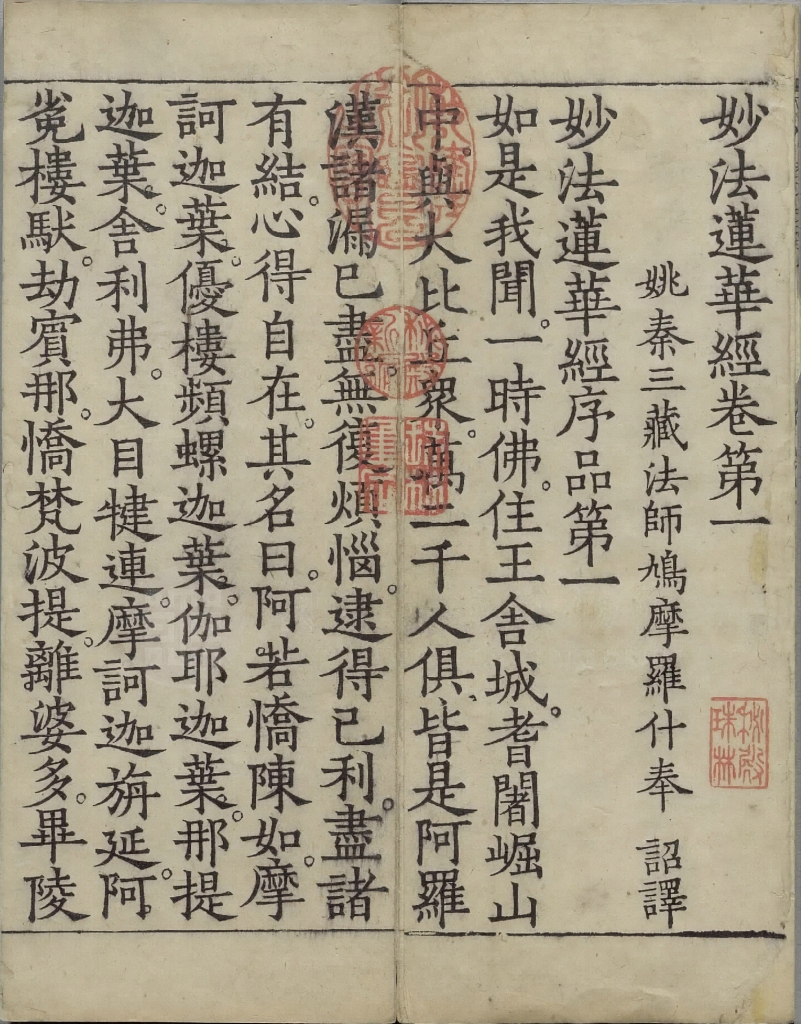 妙法蓮華經卷第一
姚秦三藏法師鳩摩羅什奉 詔譯
妙法蓮華經序品第一
如是我聞。一時佛。住王舍城。耆闍崛山
中。與大比丘衆。萬二千人俱。皆是阿羅
漢諸漏已盡。無復煩惱。逮得已利。盡諸
有結。心得自在。其名曰。阿若憍陳如。摩
訶迦葉。優樓頻螺迦葉。伽耶迦葉。那提
迦葉。舍利弗。大目犍連。摩訶迦旃延。阿
㝹樓馱。劫賓那。憍梵波提。離婆多。畢陵